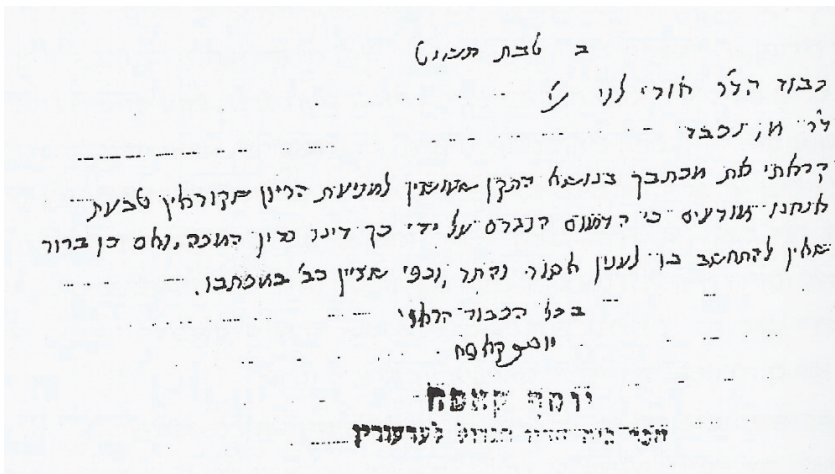 ב טבת תשיט
כבוד הד"ר אורי לוי ני
ד"ר מ, נכבד
קראתי את מכתבך בנושא התקן שעושין למניעת הריון שקוראין טבעת
אנחנו מודעים כי הדמום הנגרם על ידי כך דינו כדין המכה, ואם כן ברור
שאין להתחשב בו לענין אסור והתר, וכפי שציין כב' במכתבו.
בכל הכבוד הראוי
יוסף קאפח
יוסף קאפח
חבר בית הדין הגדול לערעורין